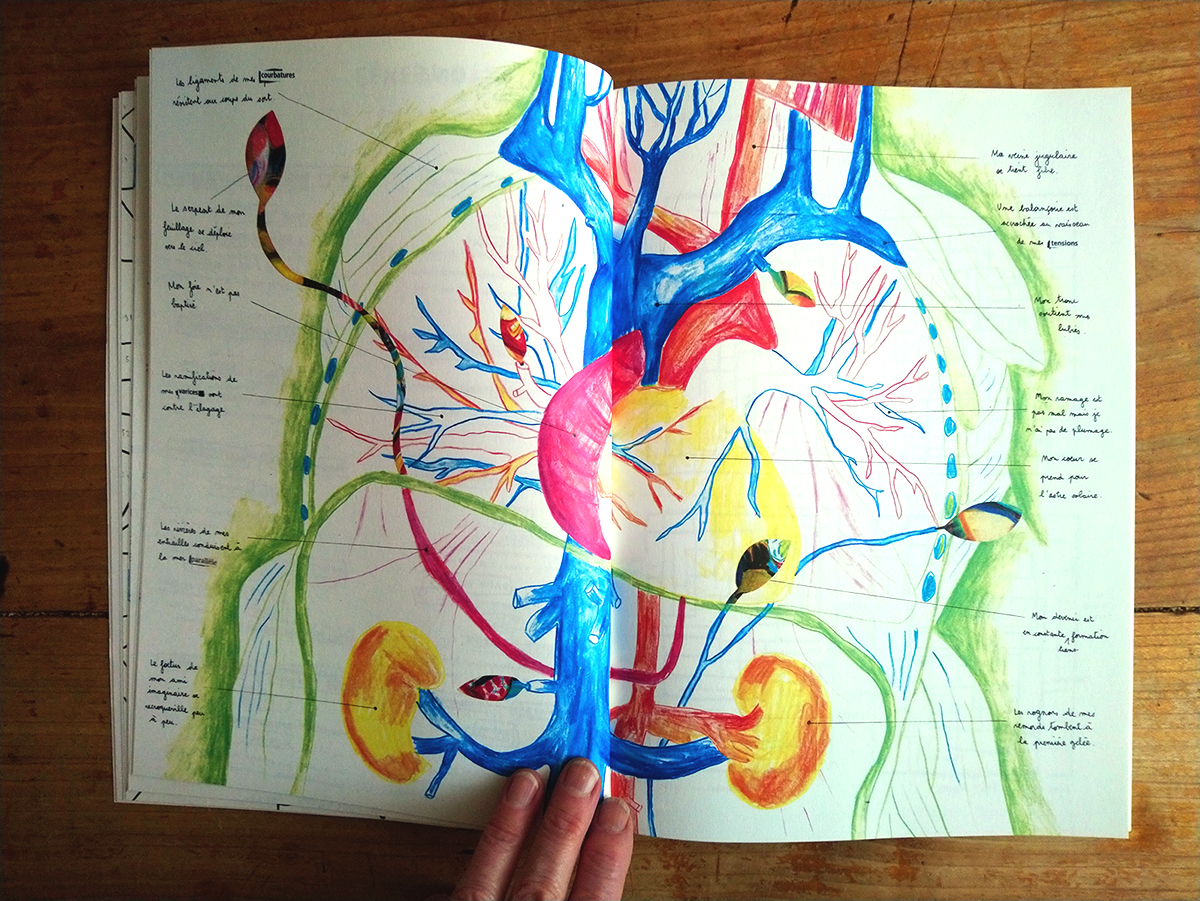 Les ligaments de mes courbatures
résistent aux coups du sort
Le serpent de mon
feuillage se déploie
vers le ciel.
Mon foie n'est pas
baptisé
Les ramifications de
mes varices sont
contre l'élagage
Les viscères de mes
entrailles conduisent à
la moi
Le foetus de
mon ami
imaginaire se
recroqueville peu
à peu.
Ma veine jugulaire
se tient fière.
Une balançoire est
accrochée au vaisseau
de mes tensions
Mon tronc
soutient mes
lubies.
Mon ramage est
pas mal mais je
n'ai pas de plumage.
Mon coeur se
prend pour
l'astre solaire.
Mon devenir est
en constante formation
lienne
Les rognons de mes
remords tombent à
la première gelée.